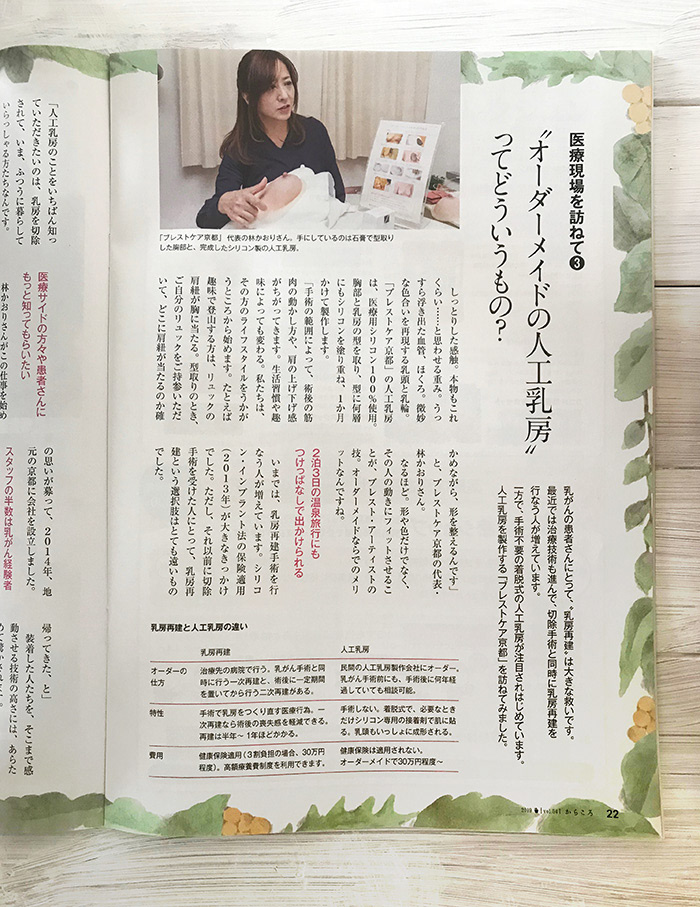 医療現場を訪ねて❸
“オーダーメイドの人工乳房”
ってどういうもの？
乳がんの患者さんにとって、“乳房再建”は大きな救いです。
最近では治療技術も進んで、切除手術と同時に乳房再建を
行なう人が増えています。
一方で、手術不要の着脱式の人工乳房が注目されはじめています。
人工乳房を製作する「ブレストケア京都」を訪ねてみました。
「ブレストケア京都」代表の林かおりさん。手にしているのは石膏で型取り
した胸部と、完成したシリコン製の人工乳房。
しっとりした感触。本物もこれ
くらい……と思わせる重み。うっ
すら浮き出た血管、ほくろ。微妙
な色合いを再現する乳頭と乳輪。
「ブレストケア京都」の人工乳房
は、医療用シリコン100％使用。
胸部と乳房の型を取り、型に何層
にもシリコンを塗り重ね、1か月
かけて製作します。
「手術の範囲によって、術後の筋
肉の動かし方や、肩の上げ下げ感
がちがってきます。生活習慣や趣
味によっても変わる。私たちは、
その方のライフスタイルをうかが
うところから始めます。たとえば
趣味で登山する方は、リュックの
肩紐が胸に当たる。型取りのとき、
ご自分のリュックをご持参いただ
いて、どこに肩紐が当たるのか確
かめながら、形を整えるんです」
と、ブレストケア京都の代表・
林かおりさん。
なるほど。形や色だけでなく、
その人の動きにフィットさせるこ
とが、ブレスト・アーティストの
技。オーダーメイドならでのメリ
ットなんですね。
2泊3日の温泉旅行にも
つけっぱなしで出かけられる
いまでは、乳房再建手術を行
なう人が増えています。シリコ
ン・インプラント法の保険適用
（2013年）が大きなきっかけ
でした。ただし、それ以前に切除
手術を受けた人にとって、乳房再
建という選択肢はとても遠いもの
でした。
乳房再建と人工乳房の違い
乳房再建
人工乳房
オーダーの
仕方
治療先の病院で行う。乳がん手術と同
時に行う一次再建と、術後に一定期間
を置いてから行う二次再建がある。
民間の人工乳房製作会社にオーダー。
乳がん手術前にも、手術後に何年経
過していても相談可能。
特性
手術で乳房をつくり直す医療行為。一
次再建なら術後の喪失感を軽減できる。
再建は半年～1年ほどかかる。
手術しない。着脱式で、必要なときだ
けシリコン専用の接着剤で肌に貼
る。乳頭もいっしょに成形される。
費用
健康保険適用（3割負担の場合、30万円
程度）。高額療養費制度を利用できます。
健康保険は適用されない。
オーダーメイドで30万円程度～
2019
vol.54
からころ
22
「人工乳房のことをいちばん知っ
ていただきたいのは、乳房を切除
されて、いま、ふつうに暮らして
いらっしゃる方たちなんです。
医療サイドの方々や患者さんに
もっと知ってもらいたい
林かおりさんがこの仕事を始め
の思いが募って、2014年、地
元の京都に会社を設立しました。
スタッフの半数は乳がん経験者
帰ってきた、と」
装着した人たちを、そこまで感
動させる技術の高さには、あらた